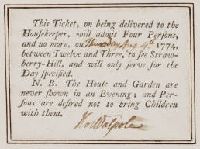 This Ticket, on being delivered to the
Housekeeper, will admit Four Persons,
and no more, on Aug 4th 1774,
between Twelve and Three, to see Straw-
berry-Hill, and will only serve for the
Day specified.
N. B. The House and Garden are
never shown in an Evening; and Per-
sons are desired not to bring Children
with them.
Hor Walpole